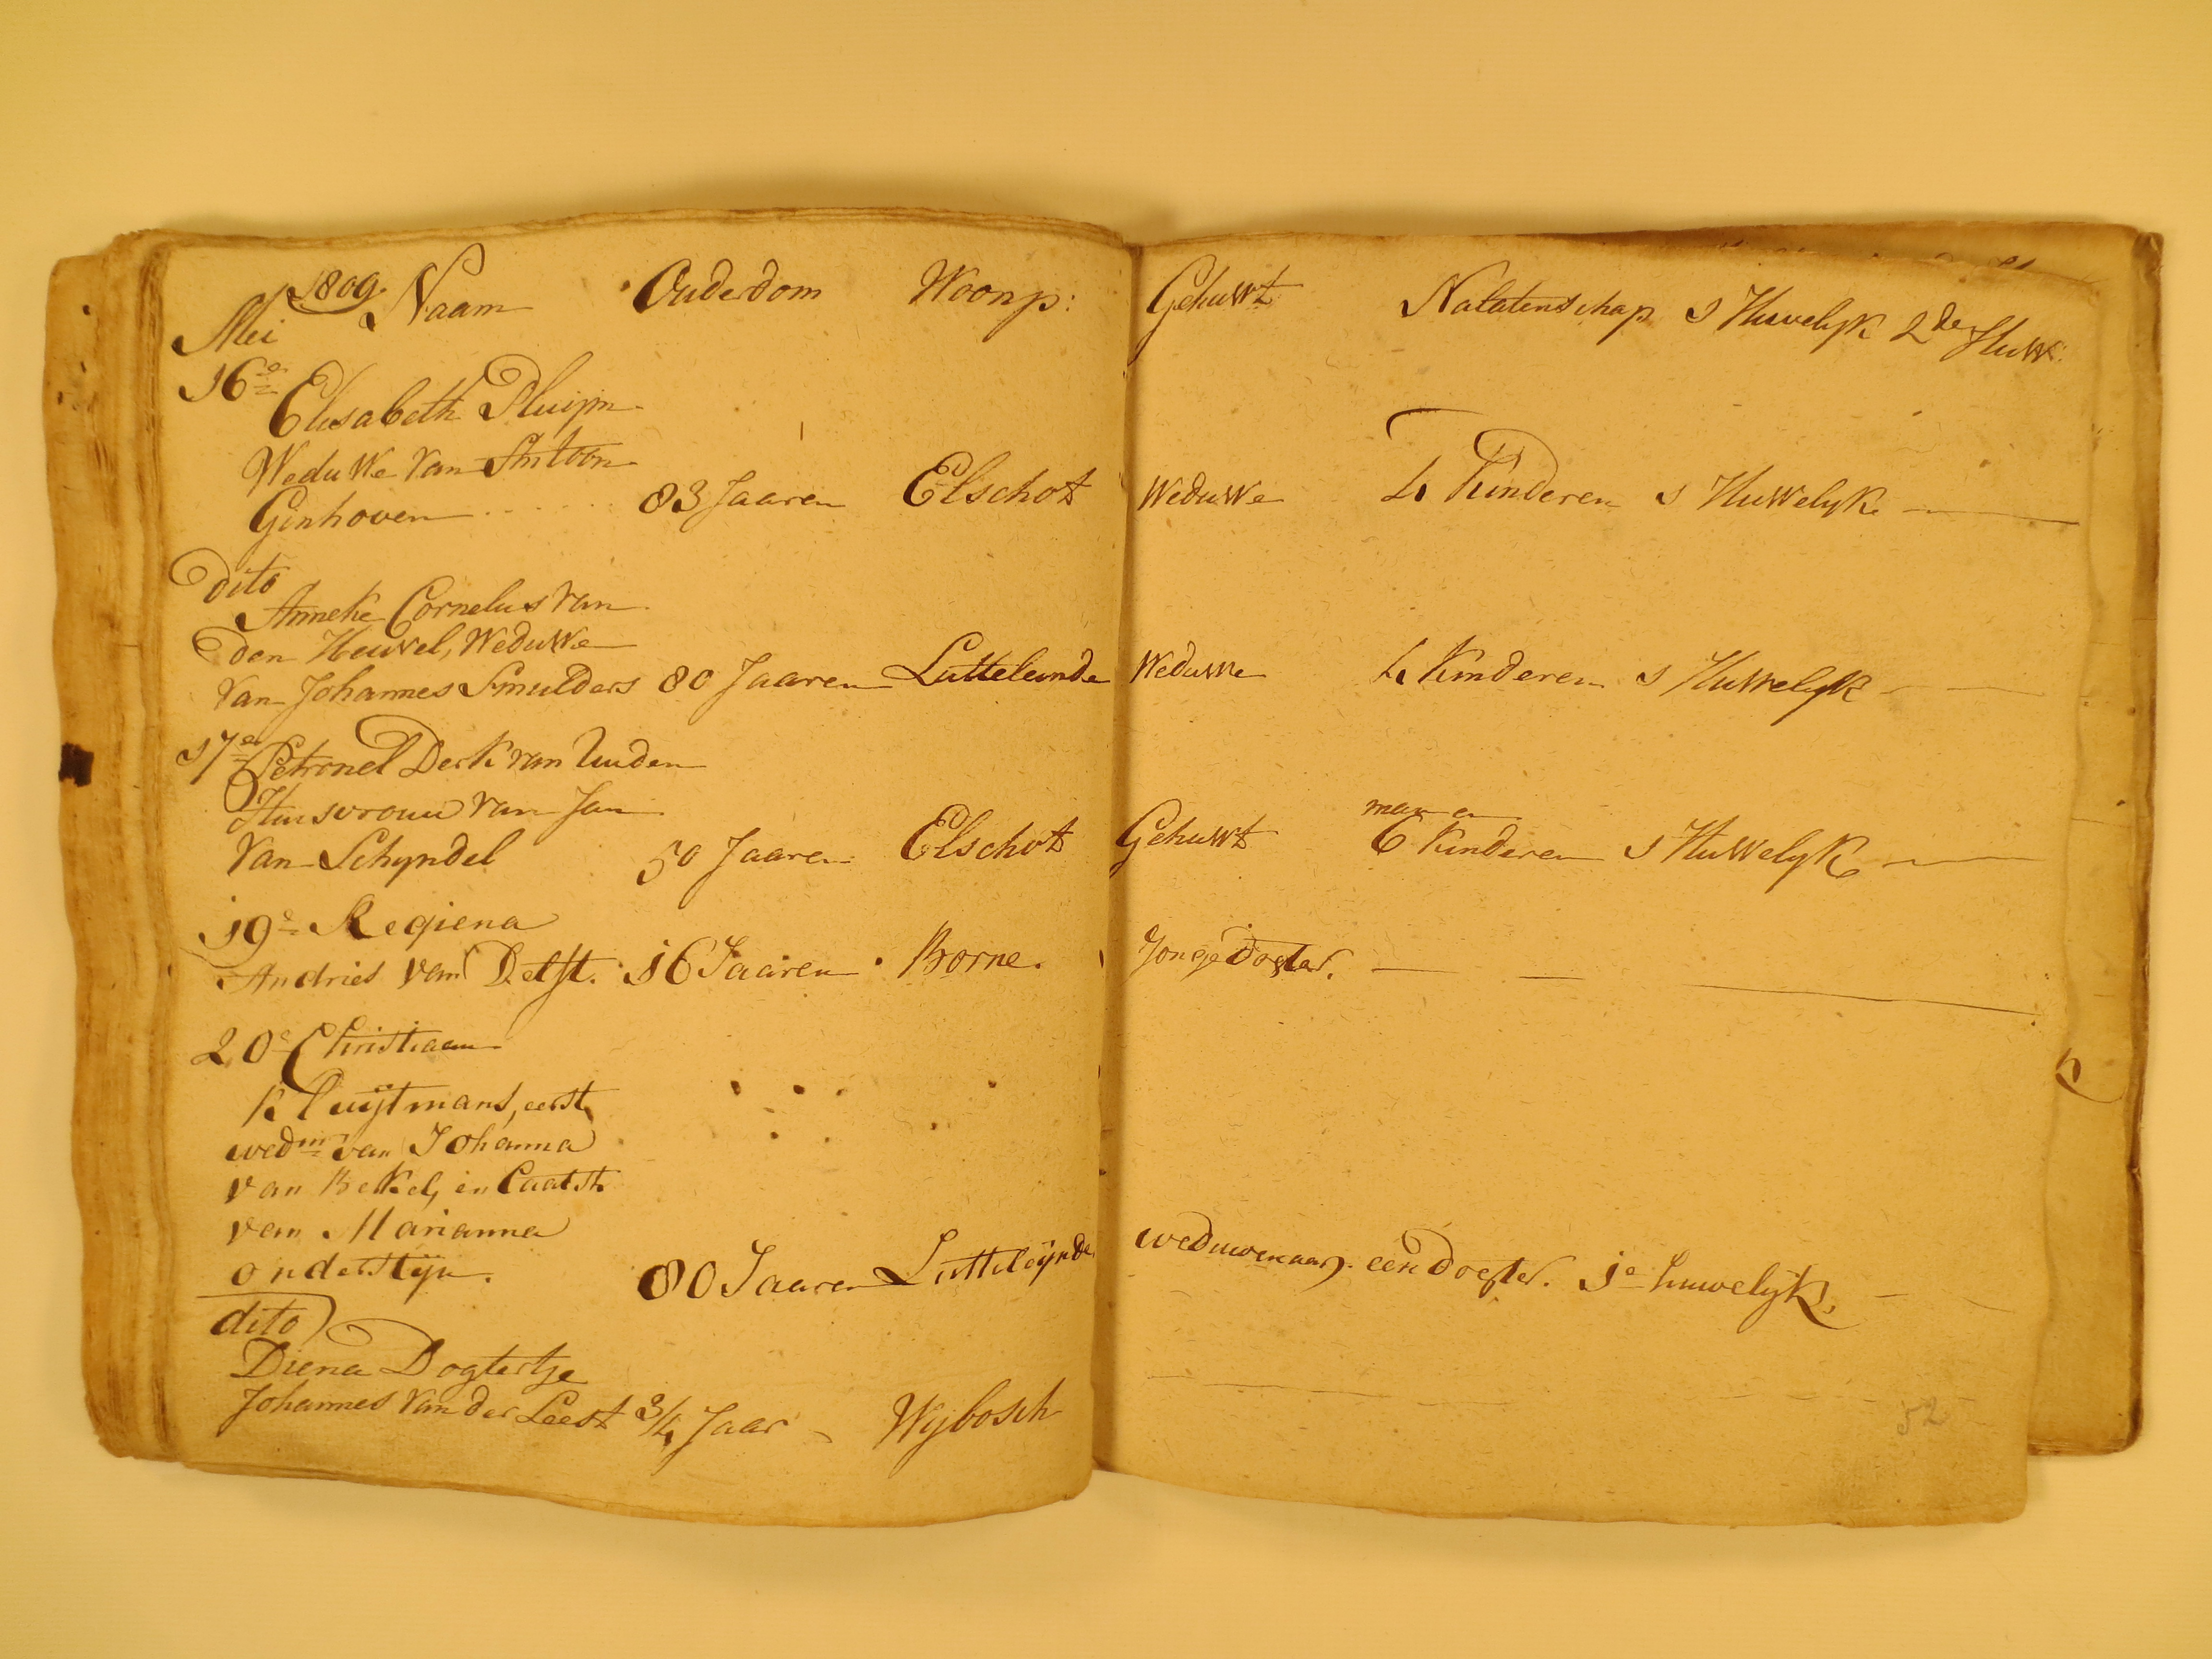 1809. Naam Ouderdom Woonp: Gehuwt Nalatenschap 1 Huwelyk 2de Huw:
Mei
16e
Elisabeth Pluijm
Weduwe van Antoon
Ginhoven ...... 83 Jaaren Elschot Weduwe 4 Kinderen 1 Huwelyk
Dito
Anneke Cornelus van
den Heuvel, Weduwe
van Johannes Smulders 80 Jaaren Lutteleinde Weduwe 4 Kinderen 1 Huwelyk
17e Petronel Derk van Uuden
Huisvrouw van Jan man en
van Schyndel 50 Jaaren Elschot Gehuwt 6 kinderen 1 Huwelyk
19e Regiena
Andries van Delft. 16 Jaaren Borne. Jonge Dogter.
20e Christiaan
Kluijtmans, eerst
wedmr van Johanna
van Berkel, en laatst
van Marianna
onderstijn. 80 Jaaren Lutteleijnde weduwenaar. een Dogter. 1e huwelijk.
dito
Diena Dogtertje
Johannes van der Leest 3/4 Jaar Wijbosch
52